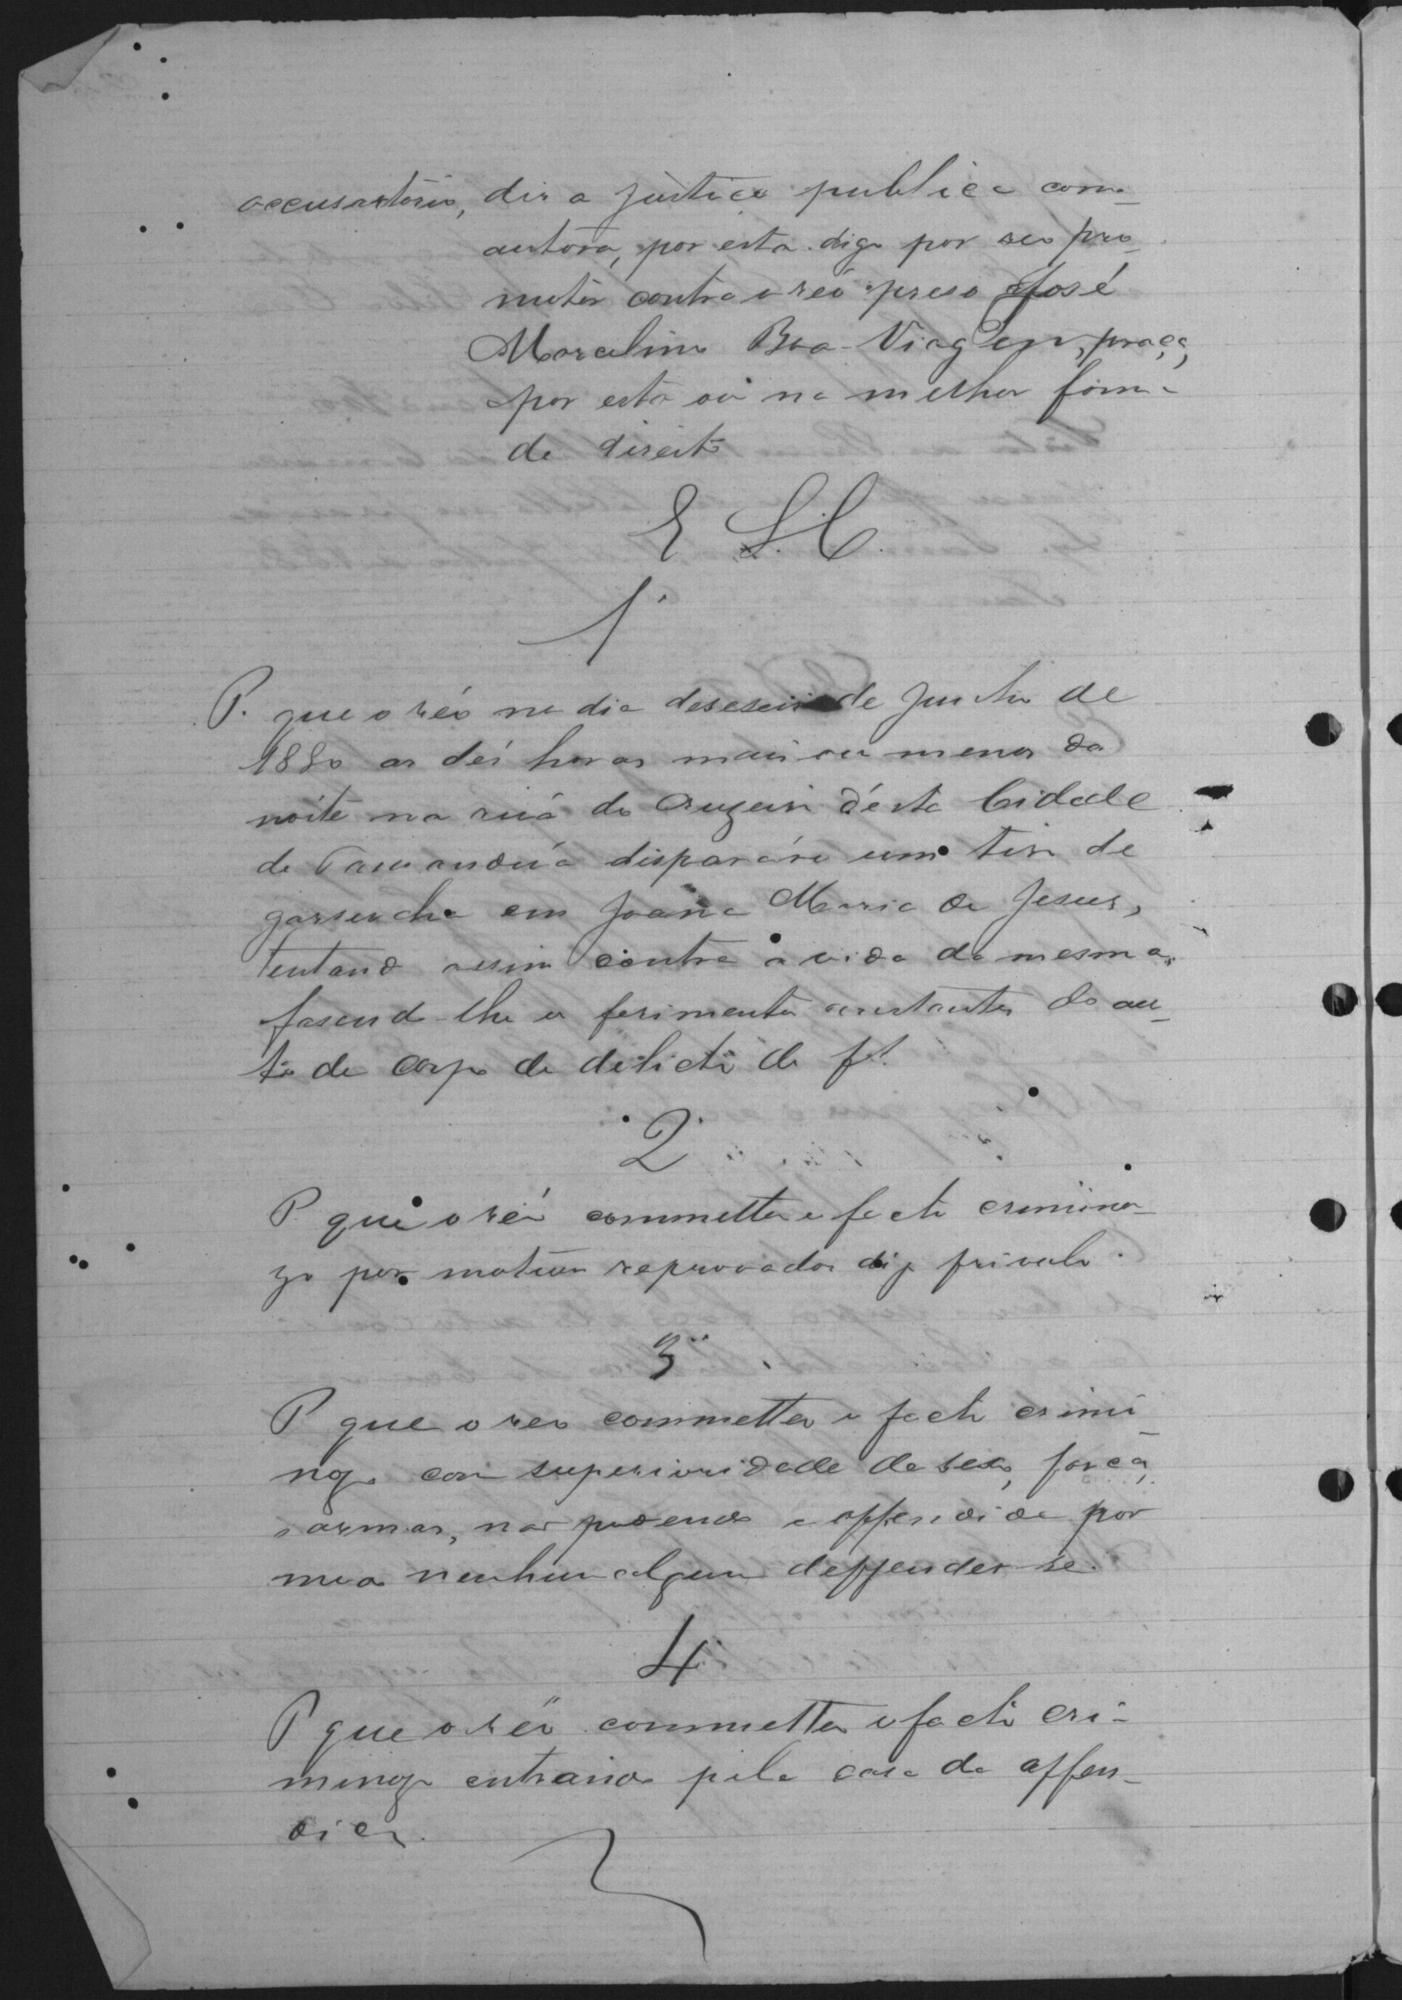 accusatorio, dis a justica publica como
autora, por esta digo por seo pro-
motor contra o reo preso José
Marcelino Boa-Viagem, praça,
por esta ou na melhor forma
de direito
E S. C.
1º
P. que o réo no dia deseseis de Junho de
1880 as dés horas mais ou menos da
noite na ruá do Cruzeiro désta Cidade
de Tamanduá disparára um tiro de
garrucha em Joana Maria de Jesus,
tentando assim contra a vida da mesma,
fasendo-lhe os ferimentos constantes do au-
to de corpo de delicto de f.
2º
P. que o réo commetteo o facto crimino-
zo por motivos reprovados digo frivolo.
3º
P que o reo commetteo o facto crimi
nozo com superioridade de sexo, forca,
e armas, nao podendo a offendida por
meio nenhum algum deffender-se.
4º
P que o réo commetteo o facto cri-
minozo entrando pela casa da offen-
dida.